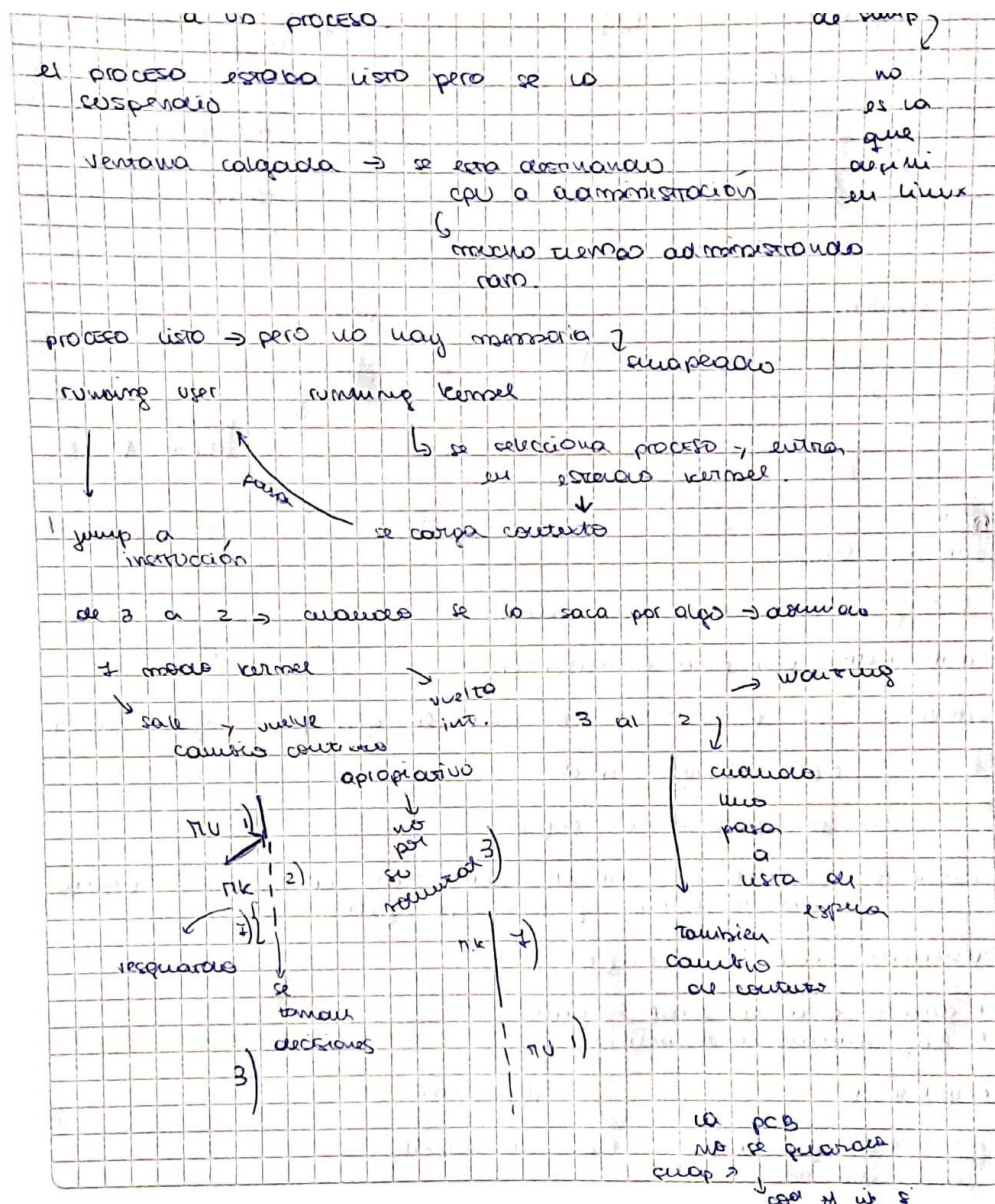 a un proceso
de swap
el proceso estaba listo pero se lo
suspendio
no
es la
que
definí
en linux
ventana colgada → se esta destinando
cpu a administración
mucho tiempo administrando
ram.
proceso listo → pero no hay memoria
swapeado
running user running kernel
se selecciona proceso y entra
en estado kernel.
pasa
se carga contexto
1 jump a
instrucción
de 3 a 2 → cuando se lo saca por algo → asumido
7 modo kernel
→ waiting
sale y vuelve
cambio contexto
vuelta
int.
3 al 2
apropiativo
no
por
su
voluntad
cuando
uno
pasa
a
lista de
espera
también
cambio
de contexto
MU 1)
MK 2)
7)
resguardo
se
toman
decisiones
3)
3)
MK 7)
MU 1)
la PCB
no se guarda
swap